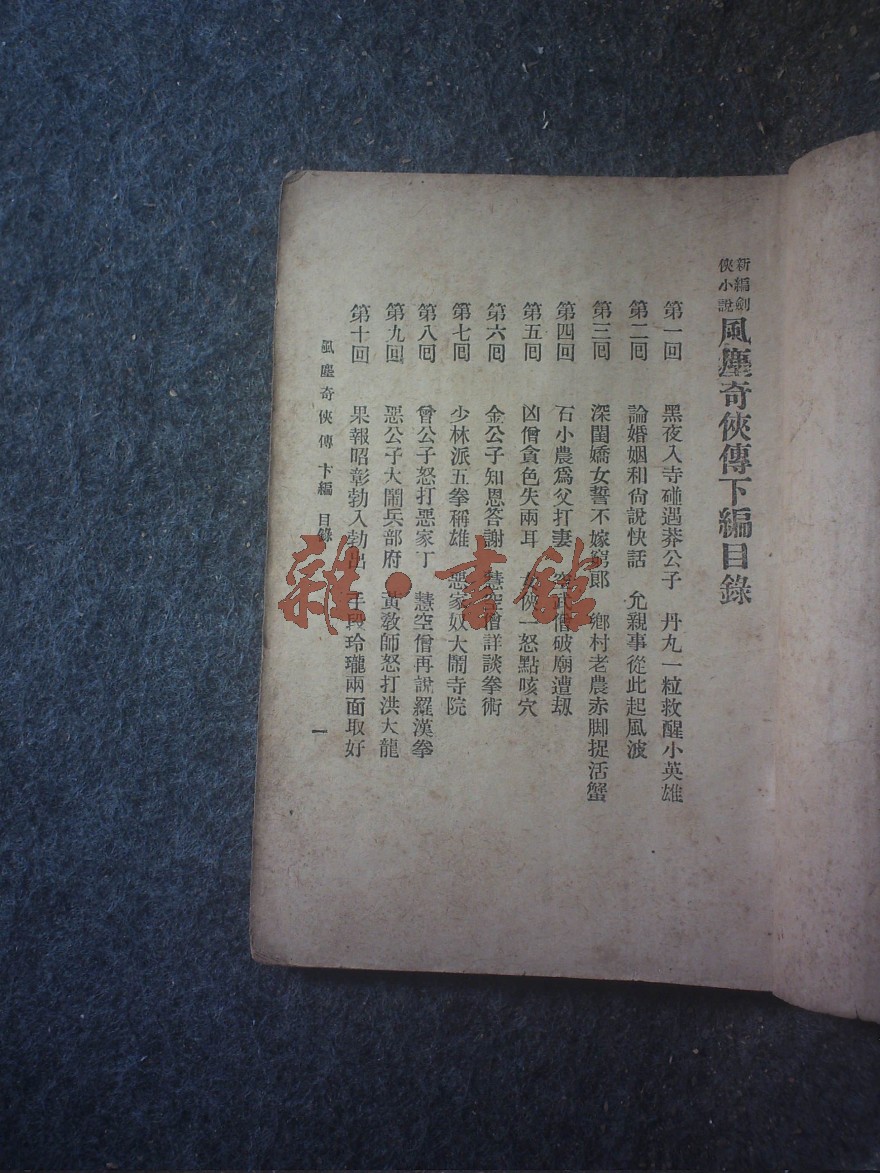 新編劍俠小說 風塵奇俠傳下編目錄
第一回 黑夜入寺碰遇莽公子 丹丸一粒救醒小英雄
第二回 論婚姻和尙說快話 允親事從此起風波
第三回 深閨嬌女誓不嫁窮郎 鄉村老農赤脚捉活蟹
第四回 石小農爲父打妻 武僧破廟遭刼
第五回 凶僧貪色失兩耳 俠一怒點咳穴
第六回 金公子知恩答謝 慧空僧詳談拳術
第七回 少林派五拳稱雄 惡家奴大鬧寺院
第八回 曾公子怒打惡家丁 慧空僧再說羅漢拳
第九回 惡公子大鬧兵部府 黃敎師怒打洪大龍
第十回 果報昭彰勃入勃出 手段玲瓏兩面取好
風塵奇俠傳 卞編 目錄
一
雜·書館